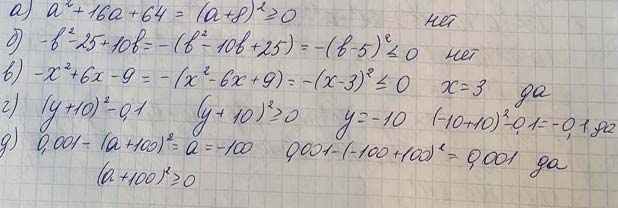 а) a²+16a+64 = (a+8)²≥0 нет
б) -b²-25+10b=-(b²-10b+25)=-(b-5)²≤0 нет
в) -x²+6x-9=-(x²-6x+9)=-(x-3)²≤0 x=3 да
г) (y+10)²-0,1 (y+10)²≥0 y=-10 (-10+10)²-0,1=-0,1 да
д) 0,001-(a+100)²=a=-100 0,001-(-100+100)²=0,001 да
(a+100)²≥0